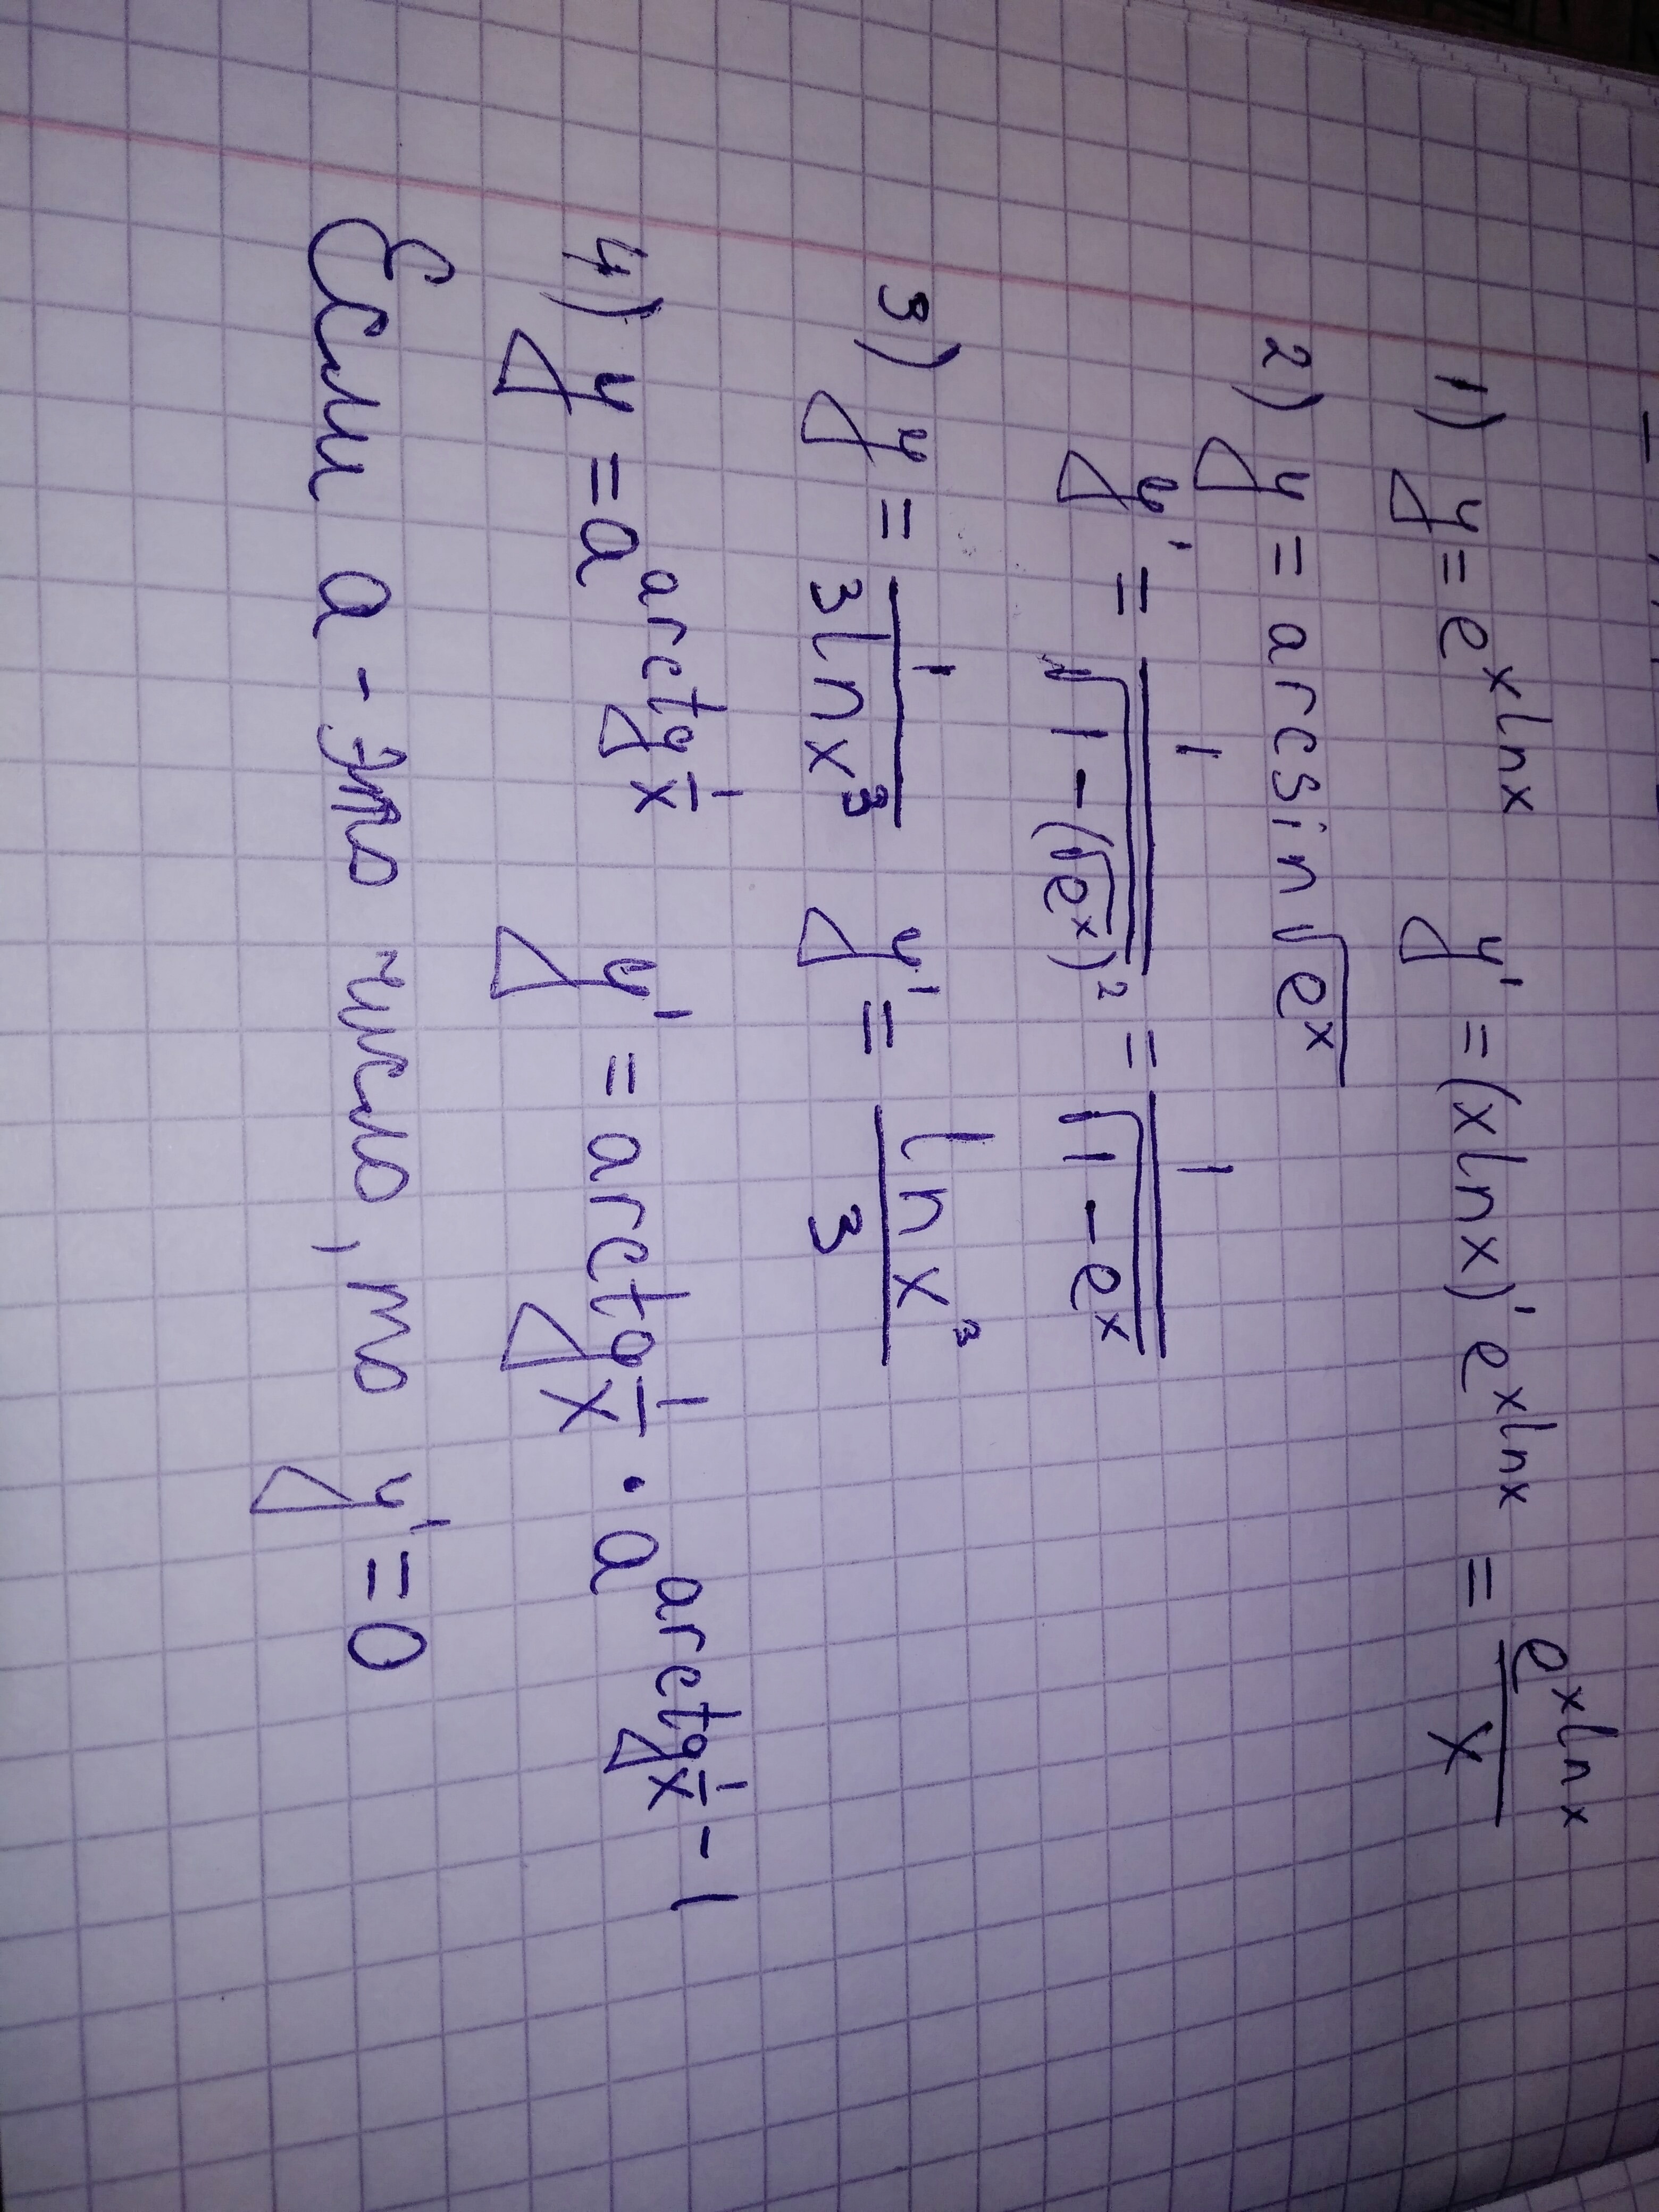 1) y = e^{x ln x}   y' = (x ln x)' e^{x ln x} = \frac{e^{x ln x}}{x}
2) y = arcsin √(e^x)
y' = \frac{1}{√(1 - (√(e^x))^2)} = \frac{1}{√(1 - e^x)}
3) y = \frac{1}{3 ln x^3}   y' = \frac{ln x^3}{3}
4) y = a^{arctg \frac{1}{x}}   y' = arctg \frac{1}{x} · a^{arctg \frac{1}{x} - 1}
Если a - это число, то y' = 0